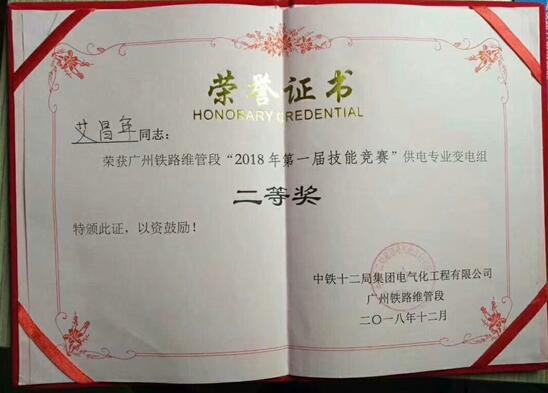 荣誉证书
HONORARY CREDENTIAL
艾昌年同志：
荣获广州铁路维管段“2018年第一届技能竞赛”供电专业变电组
二等奖
特颁此证，以资鼓励！
中铁十二局集团电气化工程有限公司
广州铁路维管段
二〇一八年十二月